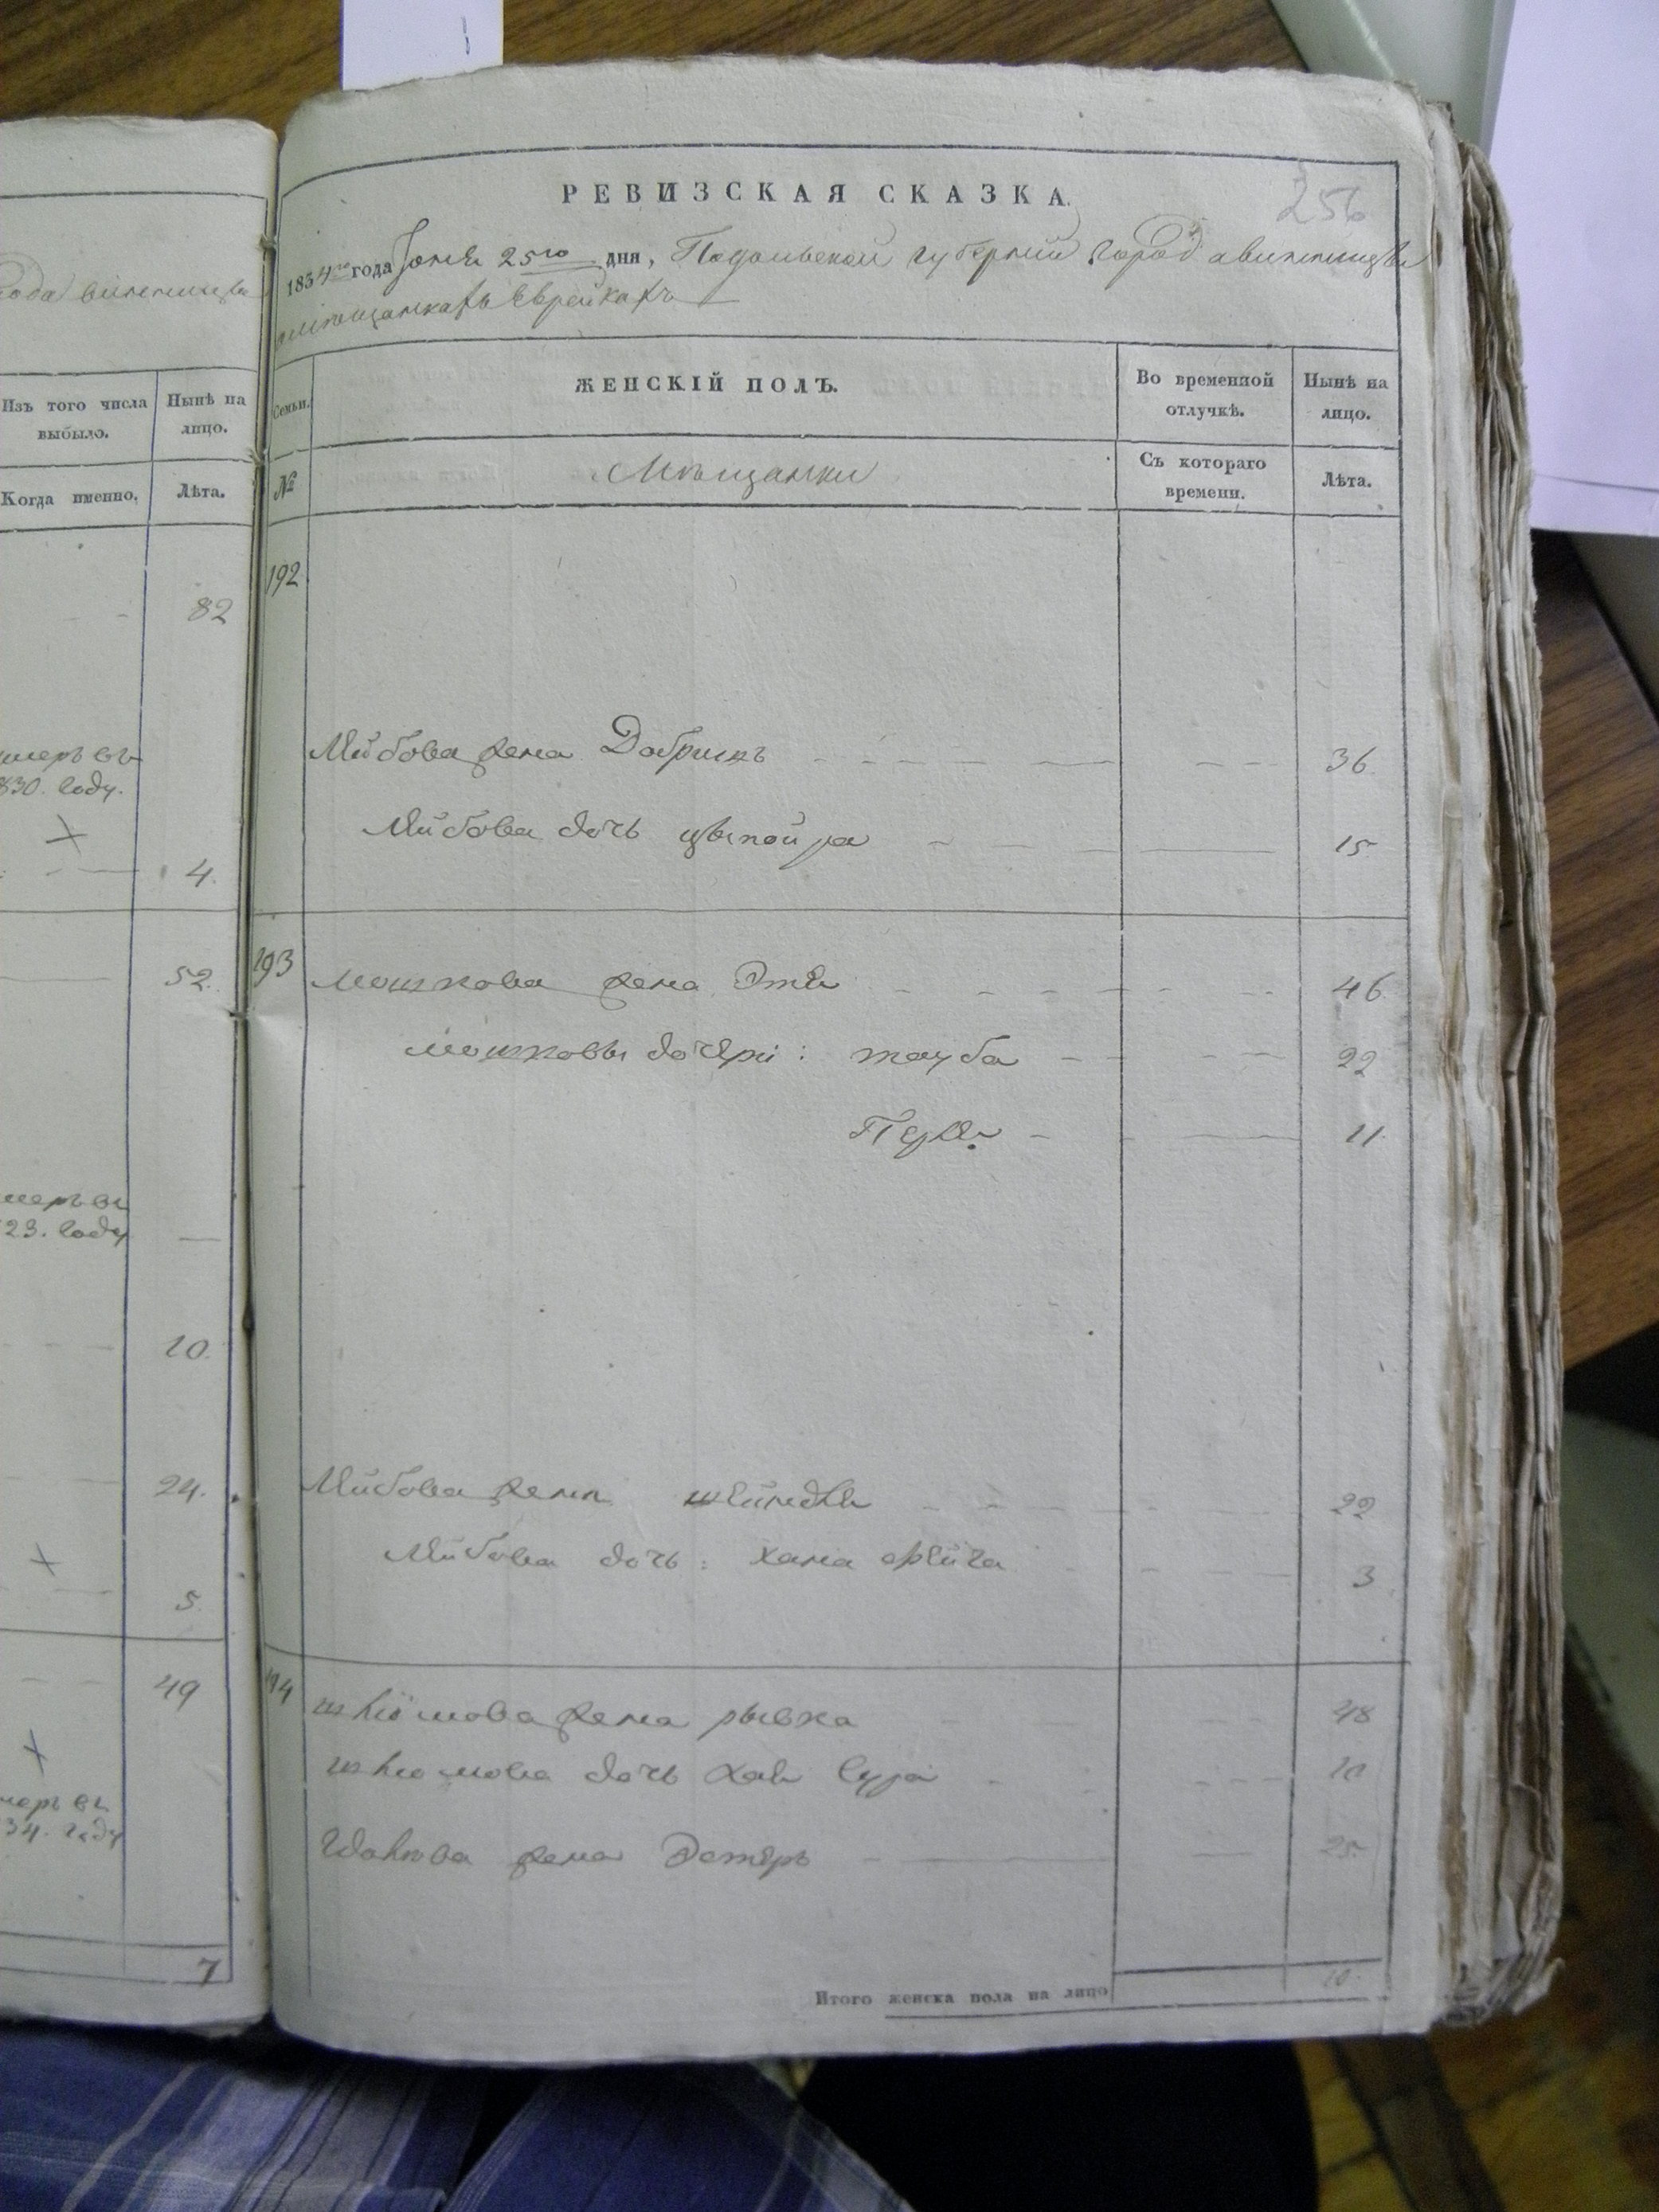 256
РЕВИЗСКАЯ СКАЗКА.
1834го года Юня 25го дня, Подольской губерніи города винницы
мѣщанкахъ Еврейкахъ
ода винницы
Изъ того числа выбыло.
Нынѣ на лицо.
Когда именно.
Лѣта.
82
умеръ въ
830. году.
4.
52.
умеръ въ
23. году
10.
24.
5.
49
меръ въ
34. году
7
Семьи.
ЖЕНСКІЙ ПОЛЪ.
Во временной отлучкѣ.
Нынѣ на лицо.
№
Мѣщанки
Съ котораго времени.
Лѣта.
192
Лейбова жена Добрышъ 36.
Лейбова дочь цыпойра 15
193 мошкова жена Этя 46.
мошковы дочери: тауба 22
Перля 11.
Лейбова жена шейндля 22
Лейбова дочь: хана фрейга 3
194 шлiомова жена рывка 48
шлиомова дочь хая Сура 10
жена Эстеръ 25
Итого женска пола на лицо 10.